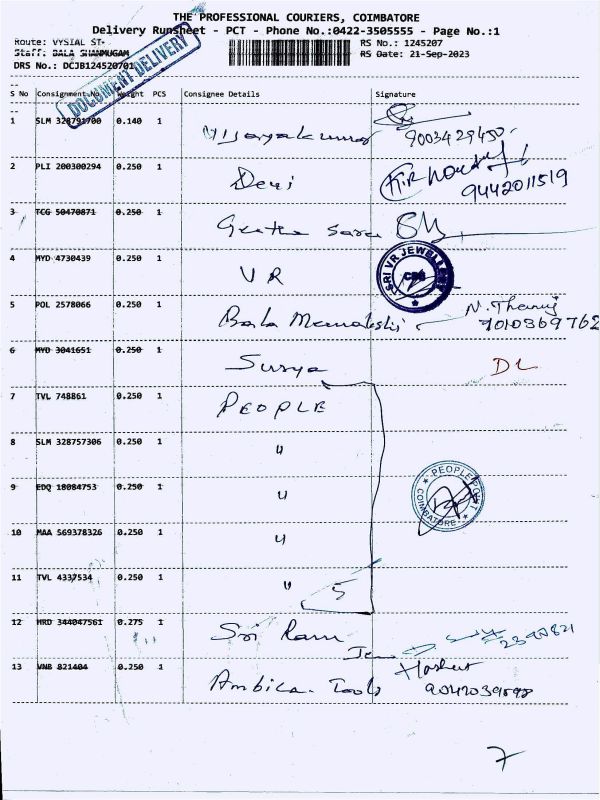 THE PROFESSIONAL COURIERS, COIMBATORE
Delivery Runsheet - PCT - Phone No.:0422-3505555 - Page No.:1
Route: VYSIAL ST- RS No.: 1245207
Staff: BALA SHANMUGAM RS Date: 21-Sep-2023
DRS No.: DCJB124520701
DOCUMENT DELIVERY
S No Consignment No Weight PCS Consignee Details Signature
1 SLM 328791700 0.140 1 Vijayakumar 9003429450
2 PLI 200300294 0.250 1 Devi 9442011519
3 TCG 50470871 0.250 1 Geetha
4 MYD 4730439 0.250 1 VR SRI VR JEWELLERY CBE
5 POL 2578066 0.250 1 Bala Meenakshi N. Thenuj
7010369762
6 MYD 3041651 0.250 1 Surya DL
7 TVL 748861 0.250 1 PEOPLE
8 SLM 328757306 0.250 1 "
9 EDQ 18084753 0.250 1 " PEOPLE POINT COIMBATORE
10 MAA 569378326 0.250 1 "
11 TVL 4337534 0.250 1 " 5
12 HRD 344047561 0.275 1 Sri Ram
13 VNB 821404 0.250 1 Ambica Tools
7